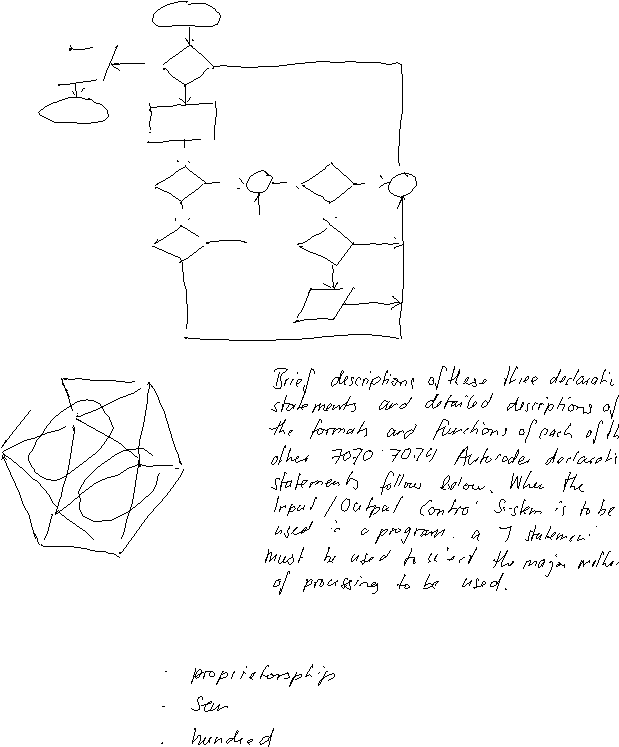 Brief descriptions of these three declarati
statements and detailed descriptions of
the formats and functions of each of th
other 7070 7074 Autocoder declarati
statements follow below. When the
Input / Output Control System is to be
used in a program. a statement
must be used to select the major method
of processing to be used.
· proprietorships
· hundred